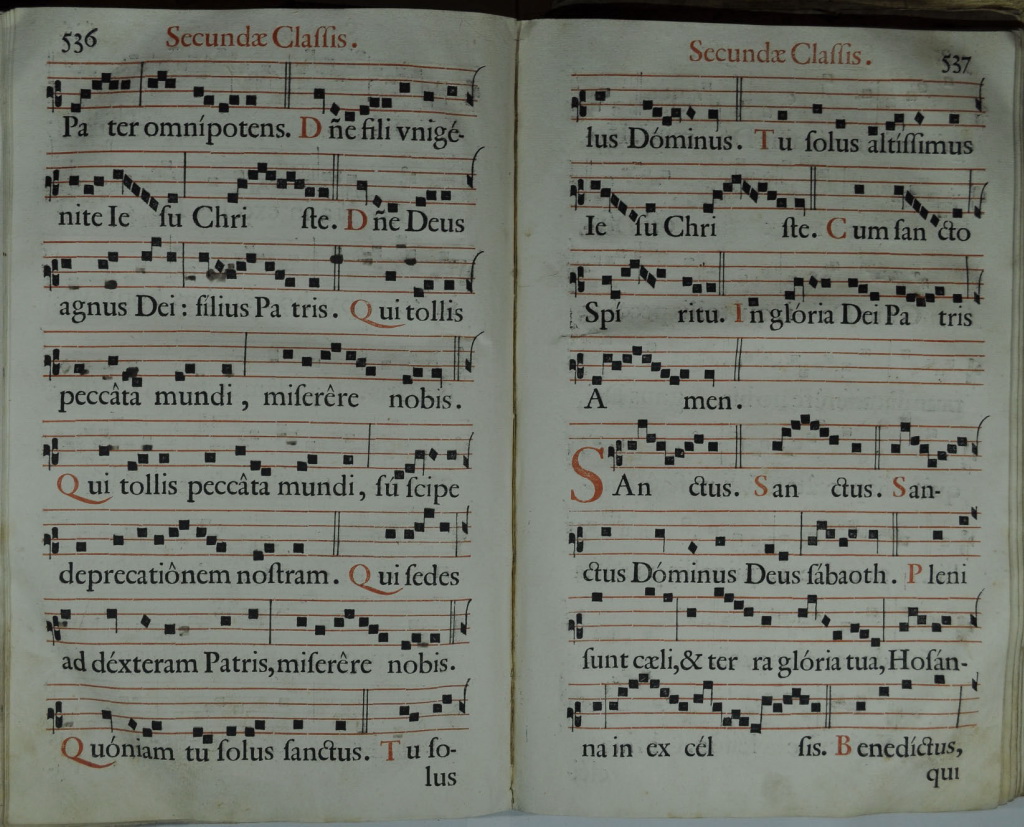 536
Secundæ Claſſis.
Pa ter omnípotens. D ñe fili vnigé-
nite Ie ſu Chri ſte. D ñe Deus
agnus Dei : filius Pa tris. Qui tollis
peccâta mundi , miſerêre nobis.
Qui tollis peccâta mundi, ſu ſcipe
deprecatiônem noſtram. Qui ſedes
ad déxteram Patris, miſerêre nobis.
Quóniam tu ſolus ſanctus. Tu ſo-
lus
Secundæ Claſſis.
537
lus Dóminus. Tu ſolus altíſſimus
Ie ſu Chri ſte. Cum ſan cto
Spí ritu. In glória Dei Pa tris
A men.
SAn ctus. San ctus. San-
ctus Dóminus Deus ſábaoth. Pleni
ſunt cæli, & ter ra glória tua, Hoſán-
na in ex cél ſis. Benedíctus,
qui